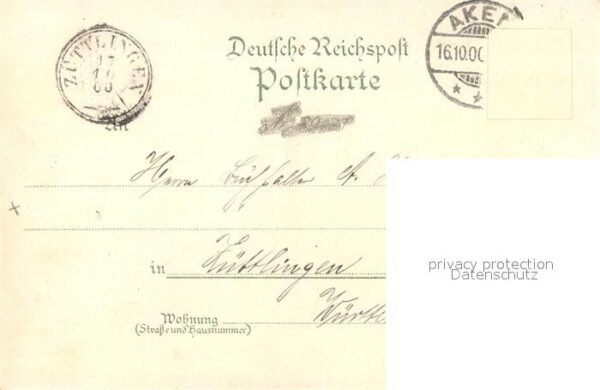 ZÜTTLINGEN
17
10
00
AKEN
16.10.00
Deutsche Reichspost
Postkarte
An
Herrn Buchhalter A.
in Züttlingen
Württe
Wohnung
(Straße und Hausnummer)
privacy protection
Datenschutz